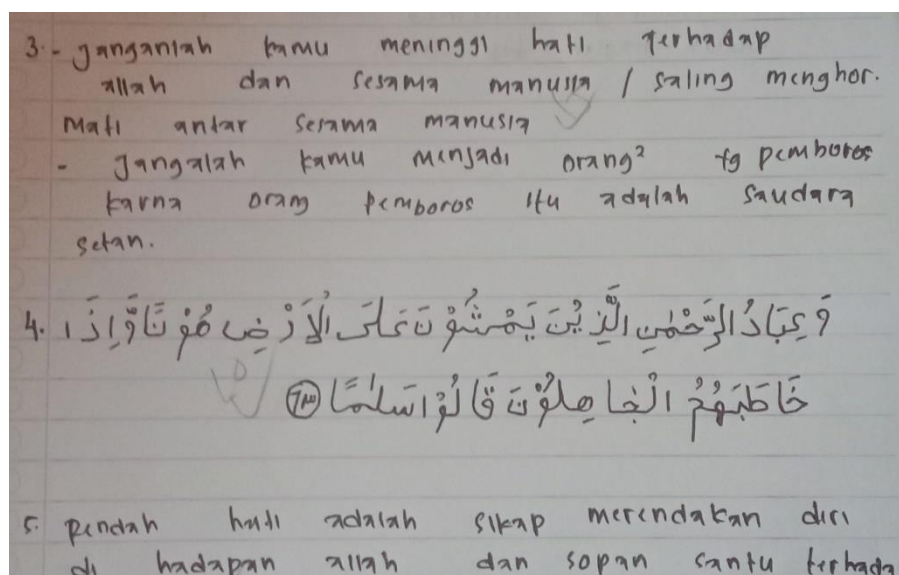 3. - Janganlah kamu meninggi hati terhadap
allah dan sesama manusia / saling menghor.
mati antar sesama manusia
- Jangalah kamu menjadi orang² yg pemboros
karna orang pemboros itu adalah saudara
setan.
4. وَعِبَادُ الرَّحْمٰنِ الَّذِيْنَ يَمْشُوْنَ عَلَى الْاَرْضِ هُوْنًا وَّاِذَا
خَاطَبَهُمُ الْجَاهِلُوْنَ قَالُوْا سَلٰمًا ٦٣
5. Rendah hati adalah sikap merendakan diri
di hadapan allah dan sopan santu terhada